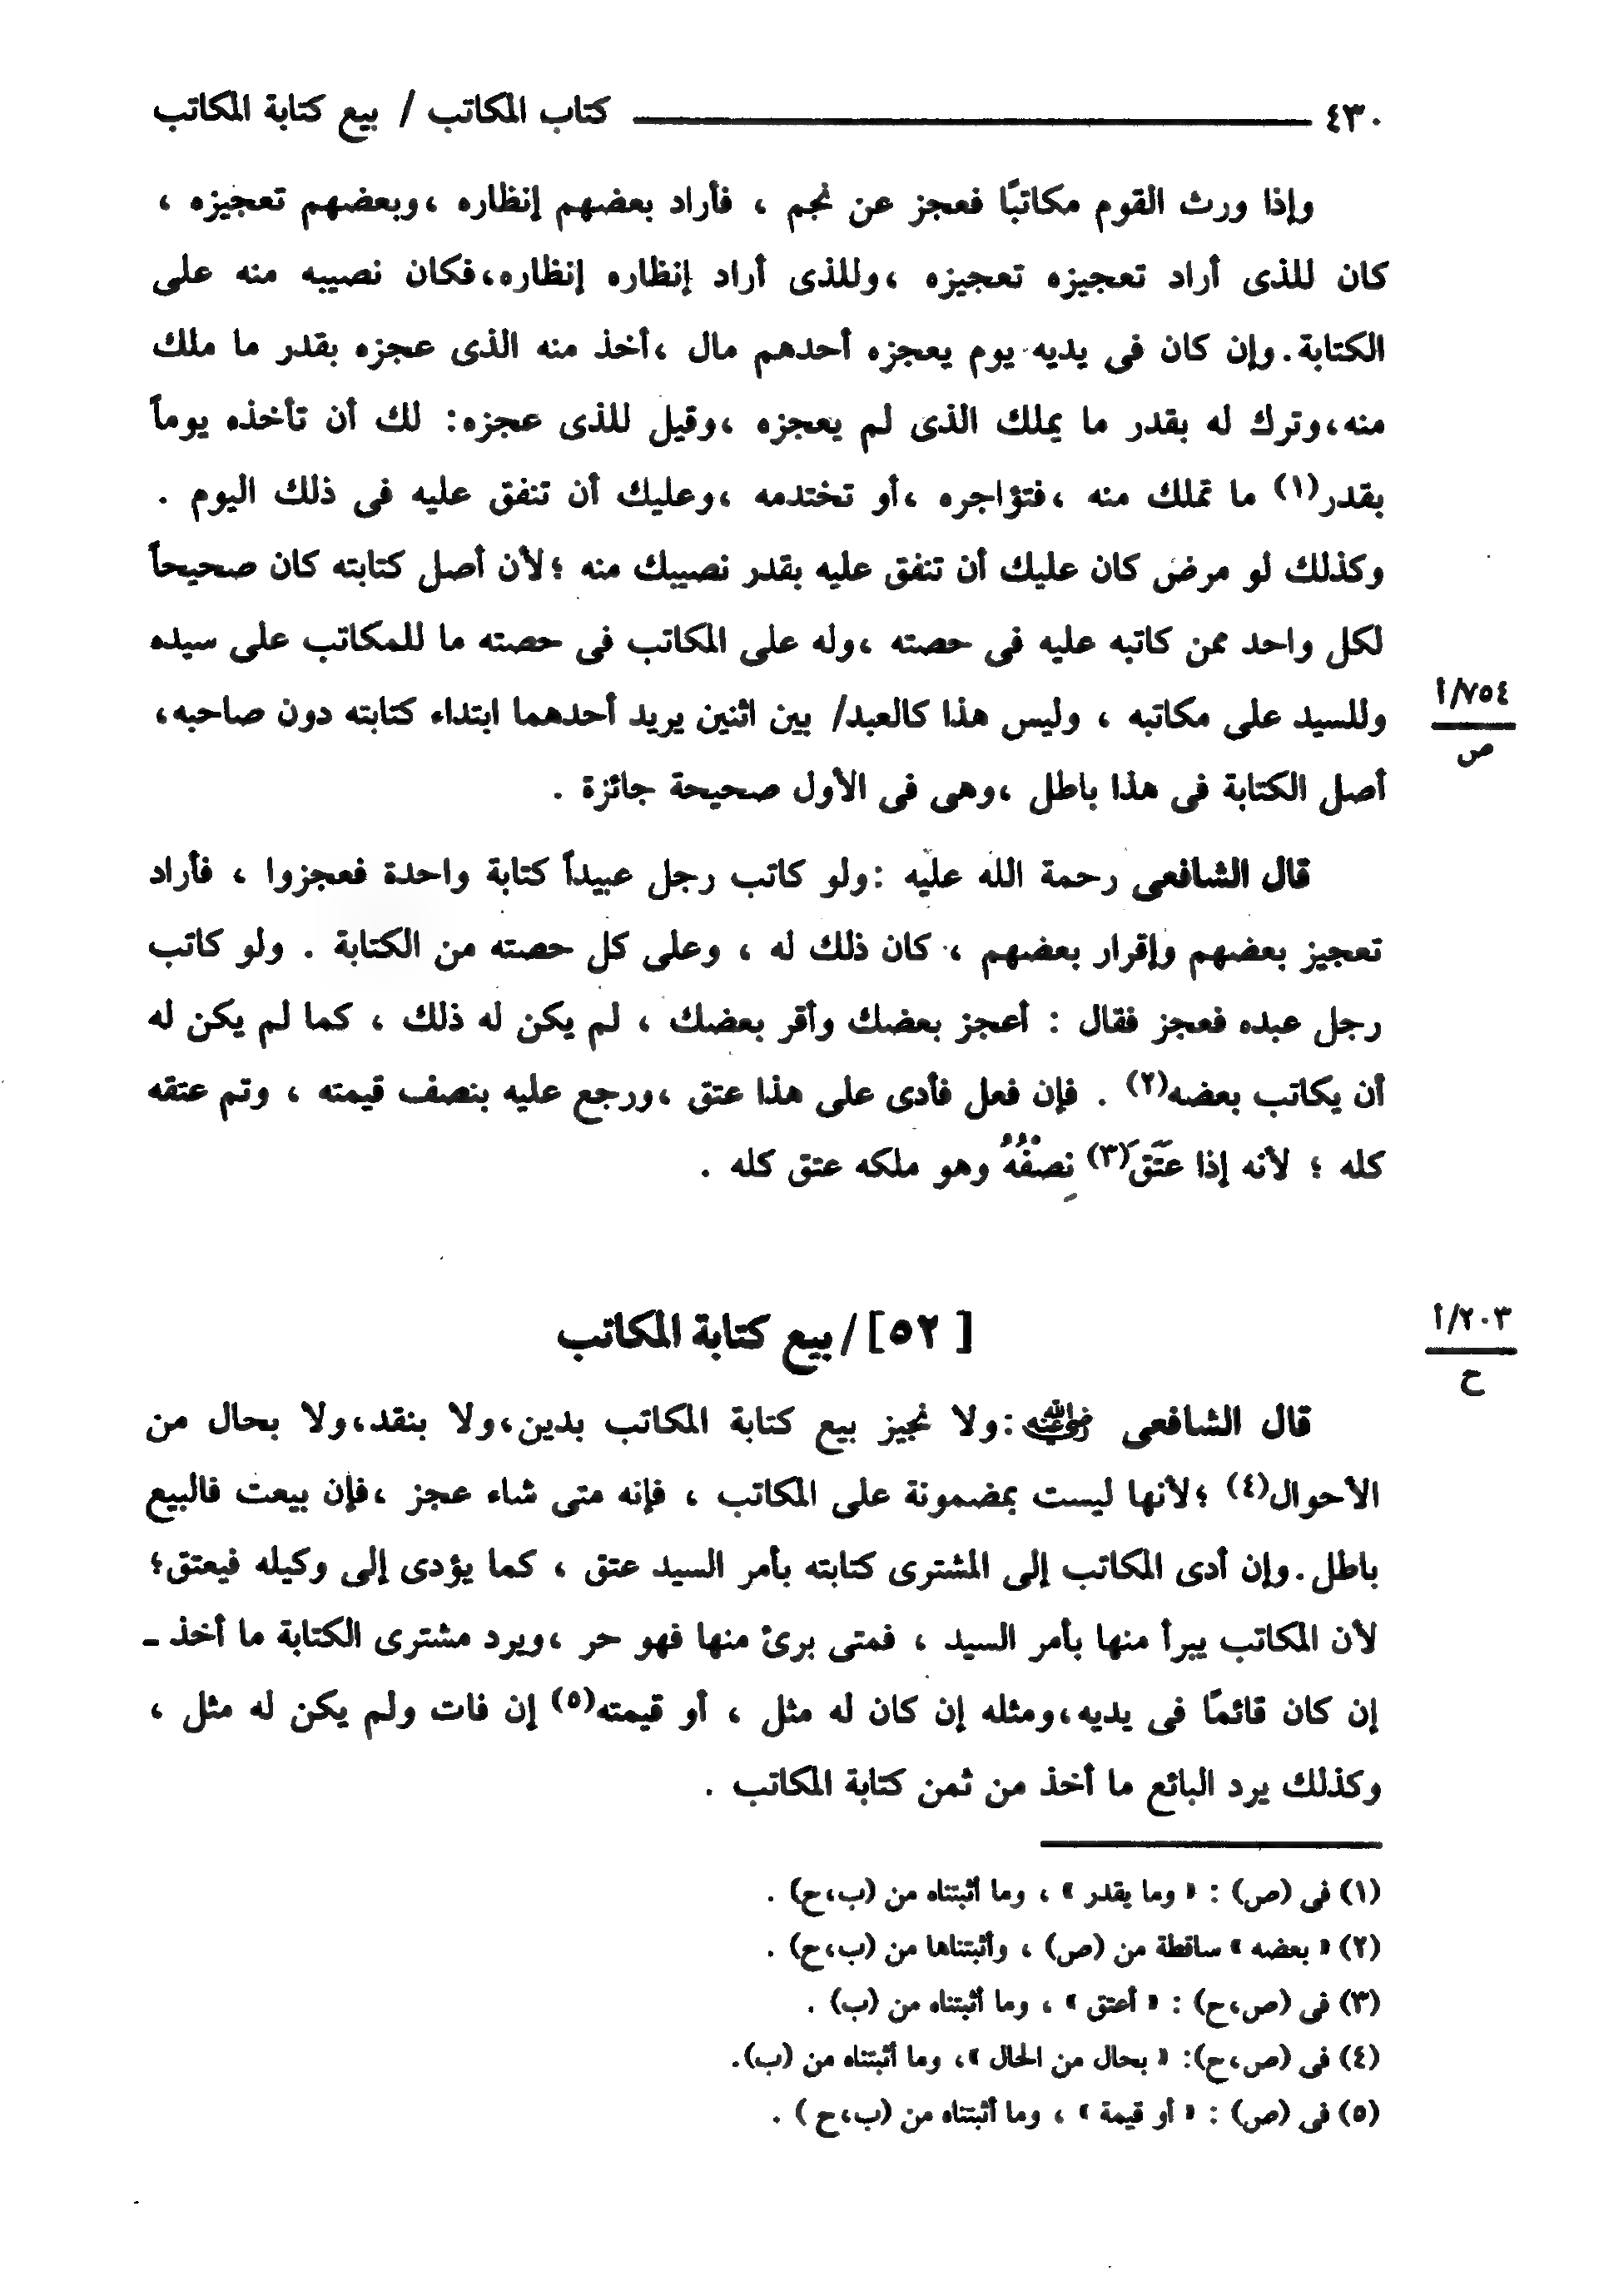 ٤٣٠ كتاب المكاتب / بيع كتابة المكاتب
وإذا ورث القوم مكاتبًا فعجز عن نجم ، فأراد بعضهم إنظاره ،وبعضهم تعجيزه ،
كان للذى أراد تعجيزه تعجيزه ،وللذى أراد إنظاره إنظاره،فكان نصيبه منه على
الكتابة.وإن كان فى يديه يوم يعجزه أحدهم مال ،أخذ منه الذى عجزه بقدر ما ملك
منه،وترك له بقدر ما يملك الذى لم يعجزه ،وقيل للذى عجزه: لك أن تأخذه يوماً
بقدر(١) ما تملك منه ،فتؤاجره ،أو تختدمه ،وعليك أن تنفق عليه فى ذلك اليوم .
وكذلك لو مرض كان عليك أن تنفق عليه بقدر نصيبك منه ؛لأن أصل كتابته كان صحيحاً
لكل واحد ممن كاتبه عليه فى حصته ،وله على المكاتب فى حصته ما للمكاتب على سيده
وللسيد على مكاتبه ، وليس هذا كالعبد/ بين اثنين يريد أحدهما ابتداء كتابته دون صاحبه،
٧٥٤/أ
ص
أصل الكتابة فى هذا باطل ،وهى فى الأول صحيحة جائزة .
قال الشافعى رحمة الله عليه :ولو كاتب رجل عبيداً كتابة واحدة فعجزوا ، فأراد
تعجيز بعضهم وإقرار بعضهم ، كان ذلك له ، وعلى كل حصته من الكتابة . ولو كاتب
رجل عبده فعجز فقال : أعجز بعضك وأقر بعضك ، لم يكن له ذلك ، كما لم يكن له
أن يكاتب بعضه(٢) . فإن فعل فأدى على هذا عتق ،ورجع عليه بنصف قيمته ، وتم عتقه
كله ؛ لأنه إذا عَتَقَ(٣) نِصفُهُ وهو ملكه عتق كله .
[ ٥٢] / بيع كتابة المكاتب
٢٠٣/أ
ح
قال الشافعى رضي الله عنه :ولا نجيز بيع كتابة المكاتب بدين،ولا بنقد،ولا بحال من
الأحوال(٤) ؛لأنها ليست بمضمونة على المكاتب ، فإنه متى شاء عجز ،فإن بيعت فالبيع
باطل.وإن أدى المكاتب إلى المشترى كتابته بأمر السيد عتق ، كما يؤدى إلى وكيله فيعتق؛
لأن المكاتب يبرأ منها بأمر السيد ، فمتى برئ منها فهو حر ،ويرد مشترى الكتابة ما أخذ ـ
إن كان قائمًا فى يديه،ومثله إن كان له مثل ، أو قيمته(٥) إن فات ولم يكن له مثل ،
وكذلك يرد البائع ما أخذ من ثمن كتابة المكاتب .
(١) فى (ص) : « وما يقدر » ، وما أثبتناه من (ب،ح) .
(٢) « بعضه » ساقطة من (ص) ، وأثبتناها من (ب،ح) .
(٣) فى (ص،ح) : « أعتق » ، وما أثبتناه من (ب) .
(٤) فى (ص،ح): « بحال من الحال »، وما أثبتناه من (ب).
(٥) فى (ص) : « أو قيمة » ، وما أثبتناه من (ب،ح ) .